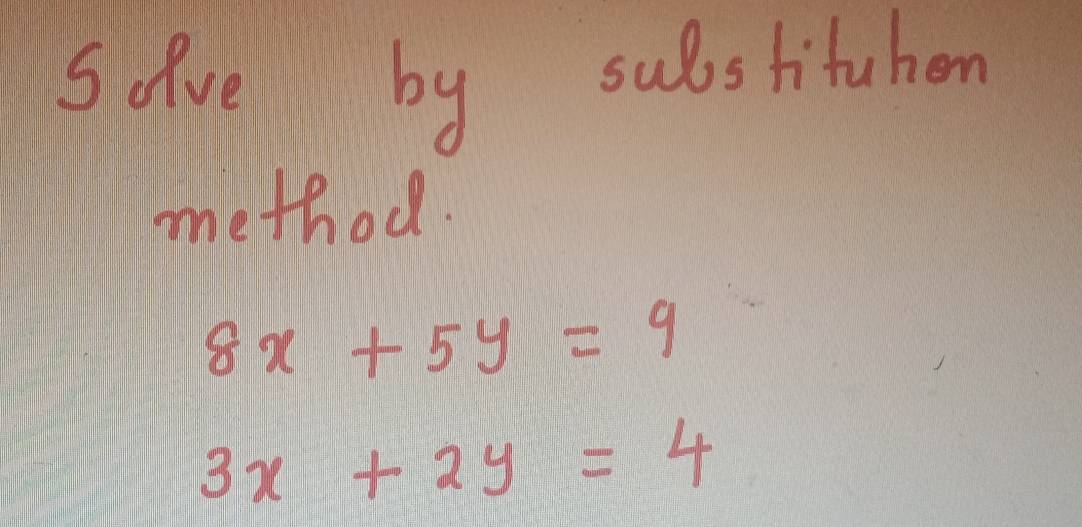 Solve by substitution
method.
8x + 5y = 9
3x + 2y = 4